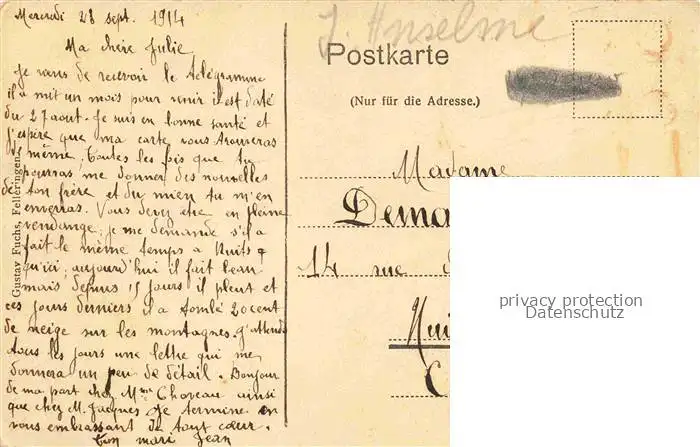 Mercredi 28 sept. 1914
Ma chère Julie
Je viens de recevoir le télégramme
il a mit un mois pour venir il est daté
du 27 aout. Je suis en bonne santé et
j'espère que ma carte vous trouveras
de même, toutes les fois que tu
pourras me donner des nouvelles
de ton frère et du mien tu m'en
enverras. Vous devez être en pleine
vendange; je me demande s'il a
fait le même temps a Nuits q
qu'ici; aujourd'hui il fait beau
mais depuis 15 jours il pleut et
ces jours derniers il a tombé 20 cent
de neige sur les montagnes. J'attends
tous les jours une lettre qui me
donnera un peu de détail. Bonjour
de ma part chez Mme Choveau ainsi
que chez M. Jacques Je termine en
vous embrassant de tout cœur.
Ton mari Jean
Gustav Fuchs, Felleringen
J. Anselme
Postkarte
(Nur für die Adresse.)
Madame
Dema
14 rue
Nui
C
privacy protection
Datenschutz